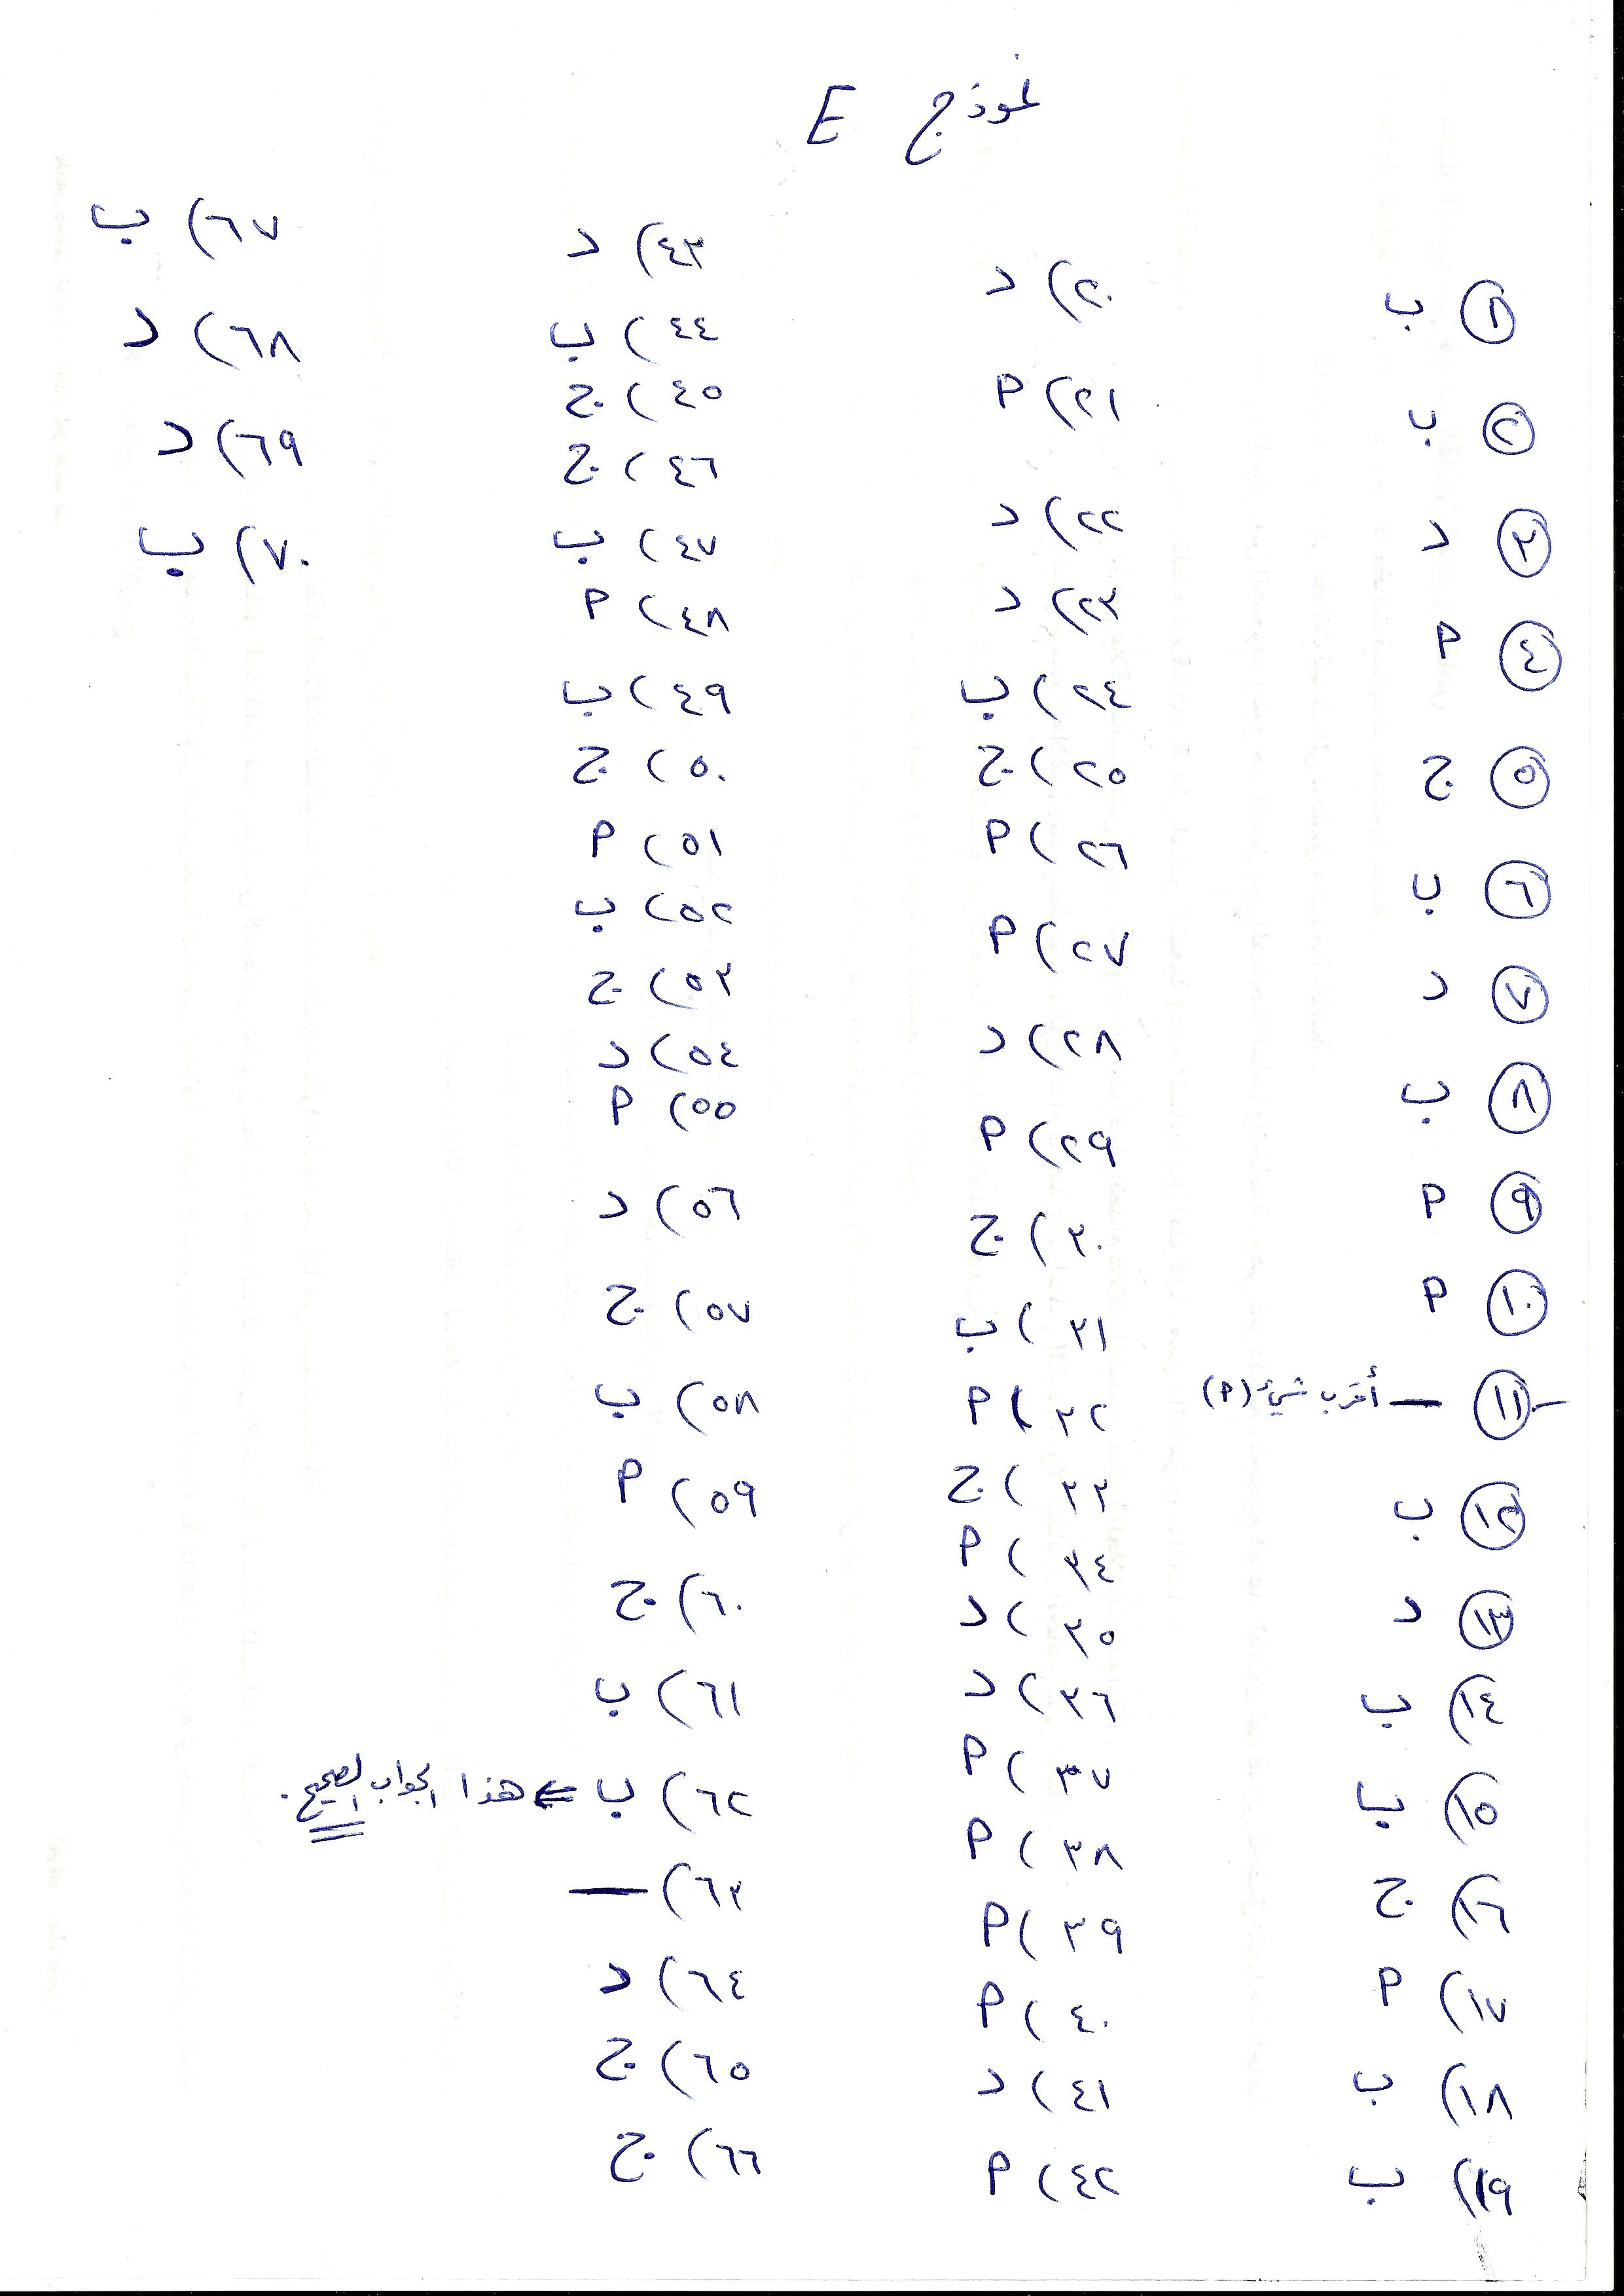 نموذج E
١) ب
٢) ب
٣) د
٤) م
٥) ج
٦) ب
٧) د
٨) ب
٩) م
١٠) م
١١) — أقرب شيء (م)
١٢) ب
١٣) د
١٤) ب
١٥) ب
١٦) ج
١٧) م
١٨) ب
١٩) ب
٢٠) د
٢١) م
٢٢) د
٢٣) د
٢٤) ب
٢٥) ج
٢٦) م
٢٧) م
٢٨) د
٢٩) م
٣٠) ج
٣١) ب
٣٢) م
٣٣) ج
٣٤) م
٣٥) د
٣٦) د
٣٧) م
٣٨) م
٣٩) م
٤٠) م
٤١) د
٤٢) م
٤٣) د
٤٤) ب
٤٥) ج
٤٦) ج
٤٧) ب
٤٨) م
٤٩) ب
٥٠) ج
٥١) م
٥٢) ب
٥٣) ج
٥٤) د
٥٥) م
٥٦) د
٥٧) ج
٥٨) ب
٥٩) م
٦٠) ج
٦١) ب
٦٢) ب ⇐ هذا الجواب الصحيح.
٦٣) —
٦٤) د
٦٥) ج
٦٦) ج
٦٧) ب
٦٨) د
٦٩) د
٧٠) ب